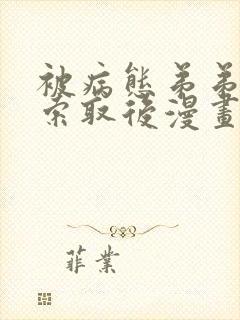 被病態弟弟
索取後漫畫
菲業